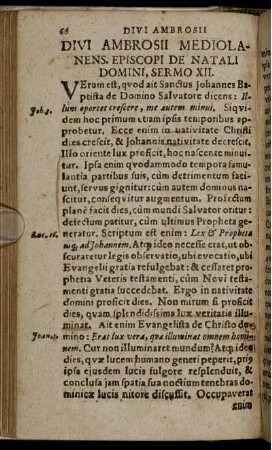 66 DIVI AMBROSII
DIVI AMBROSII MEDIOLA-
NENS. EPISCOPI DE NATALI
DOMINI, SERMO XII.
VErum est, quod ait Sanctus Johannes Ba-
ptista de Domino Salvatore dicens: Il-
Joh. 3. lum oportet crescere, me autem minui. Siqvi-
dem hoc primum etiam ipsis temporibus ap-
probetur. Ecce enim in nativitate Christi
dies crescit, & Johannis nativitate decrescit.
Illo oriente lux proficit, hoc nascente minui-
tur. Ipsa enim qvodammodo tempora famu-
lantia partibus suis, cùm detrimentum faci-
unt, servus gignitur: cùm autem dominus na-
scitur, conseqvitur augmentum. Profectum
planè facit dies, cùm mundi Salvator oritur:
defectum patitur, cùm ultimus Propheta ge-
Luc. 16. neratur. Scriptum est enim: Lex & Propheta
usq, ad Johannem. Atq; ideo necesse erat, ut ob-
scuraretur legis observatio, ubi evocatio, ubi
Evangelii gratia refulgebat: & cessaret pro-
phetia Veteris testamenti, cùm Novi testa-
menti gratia succedebat. Ergo in nativitate
domini proficit dies. Non mirum si proficit
dies, quam splendidissima lux veritatis illu-
minat. Ait enim Evangelista de Christo do-
Joan. 1. mino: Erat lux vera, qua illuminat omnem homi-
nem. Cur non illuminaret mundum? Atq; ideo
dies, qvæ lucem humano generi peperit, pri9
ipsa ejusdem lucis fulgore resplenduit, &
conclusa jam spatia sua noctium tenebras do-
minicæ lucis nitore discussit. Occupaverat
enim